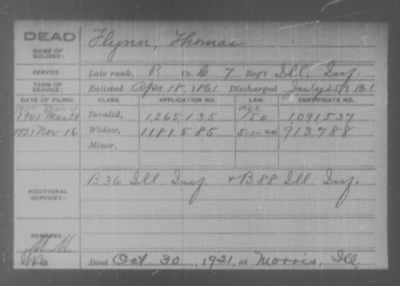 DEAD
NAME OF SOLDIER: Flynn, Thomas
SERVICE: Late rank, P Co. C, 7 Reg't Ill. Inf.
TERM OF SERVICE: Enlisted Apr 18, 1861 Discharged July 25, 1861
DATE OF FILING. CLASS. APPLICATION NO. LAW. CERTIFICATE NO.
1901 Mar Invalid, 1265135 1091537
1921 Nov-16 Widow, 1181585 5-1-20 913788
Minor,
ADDITIONAL SERVICES: B 36 Ill. Inf + B 88 Ill. Inf.
REMARKS:
Died Oct. 30, 1921, at Morris, Ill,